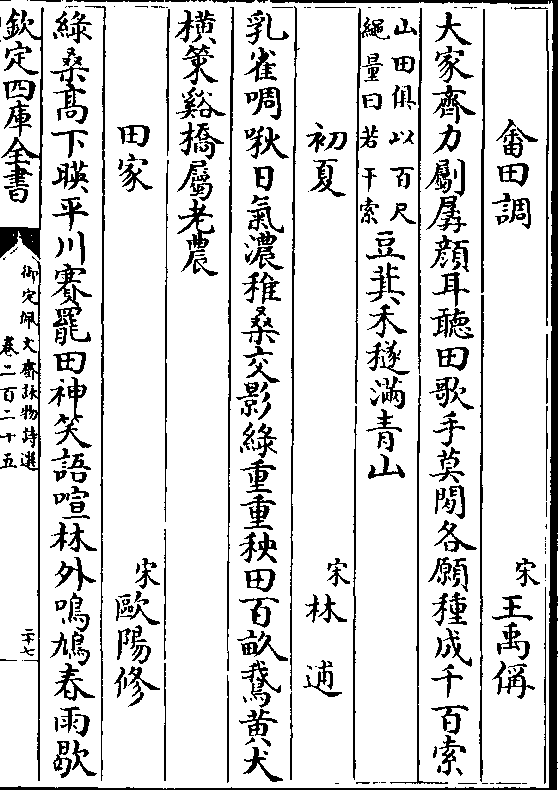 畬田調
宋王禹偁
大家齊力斸孱顔耳聽田歌手莫閒各願種成千百索
山田俱以百尺
繩量曰若干索
豆萁禾穟滿青山
初夏
宋林逋
乳雀啁啾日氣濃稚桑交影綠重重秧田百畝鵞黄大
横策谿橋屬老農
田家
宋歐陽修
綠桑髙下暎平川賽罷田神笑語喧林外鳴鳩春雨歇
欽定四庫全書
御定佩文齋詠物詩選
卷二百二十五
二十七